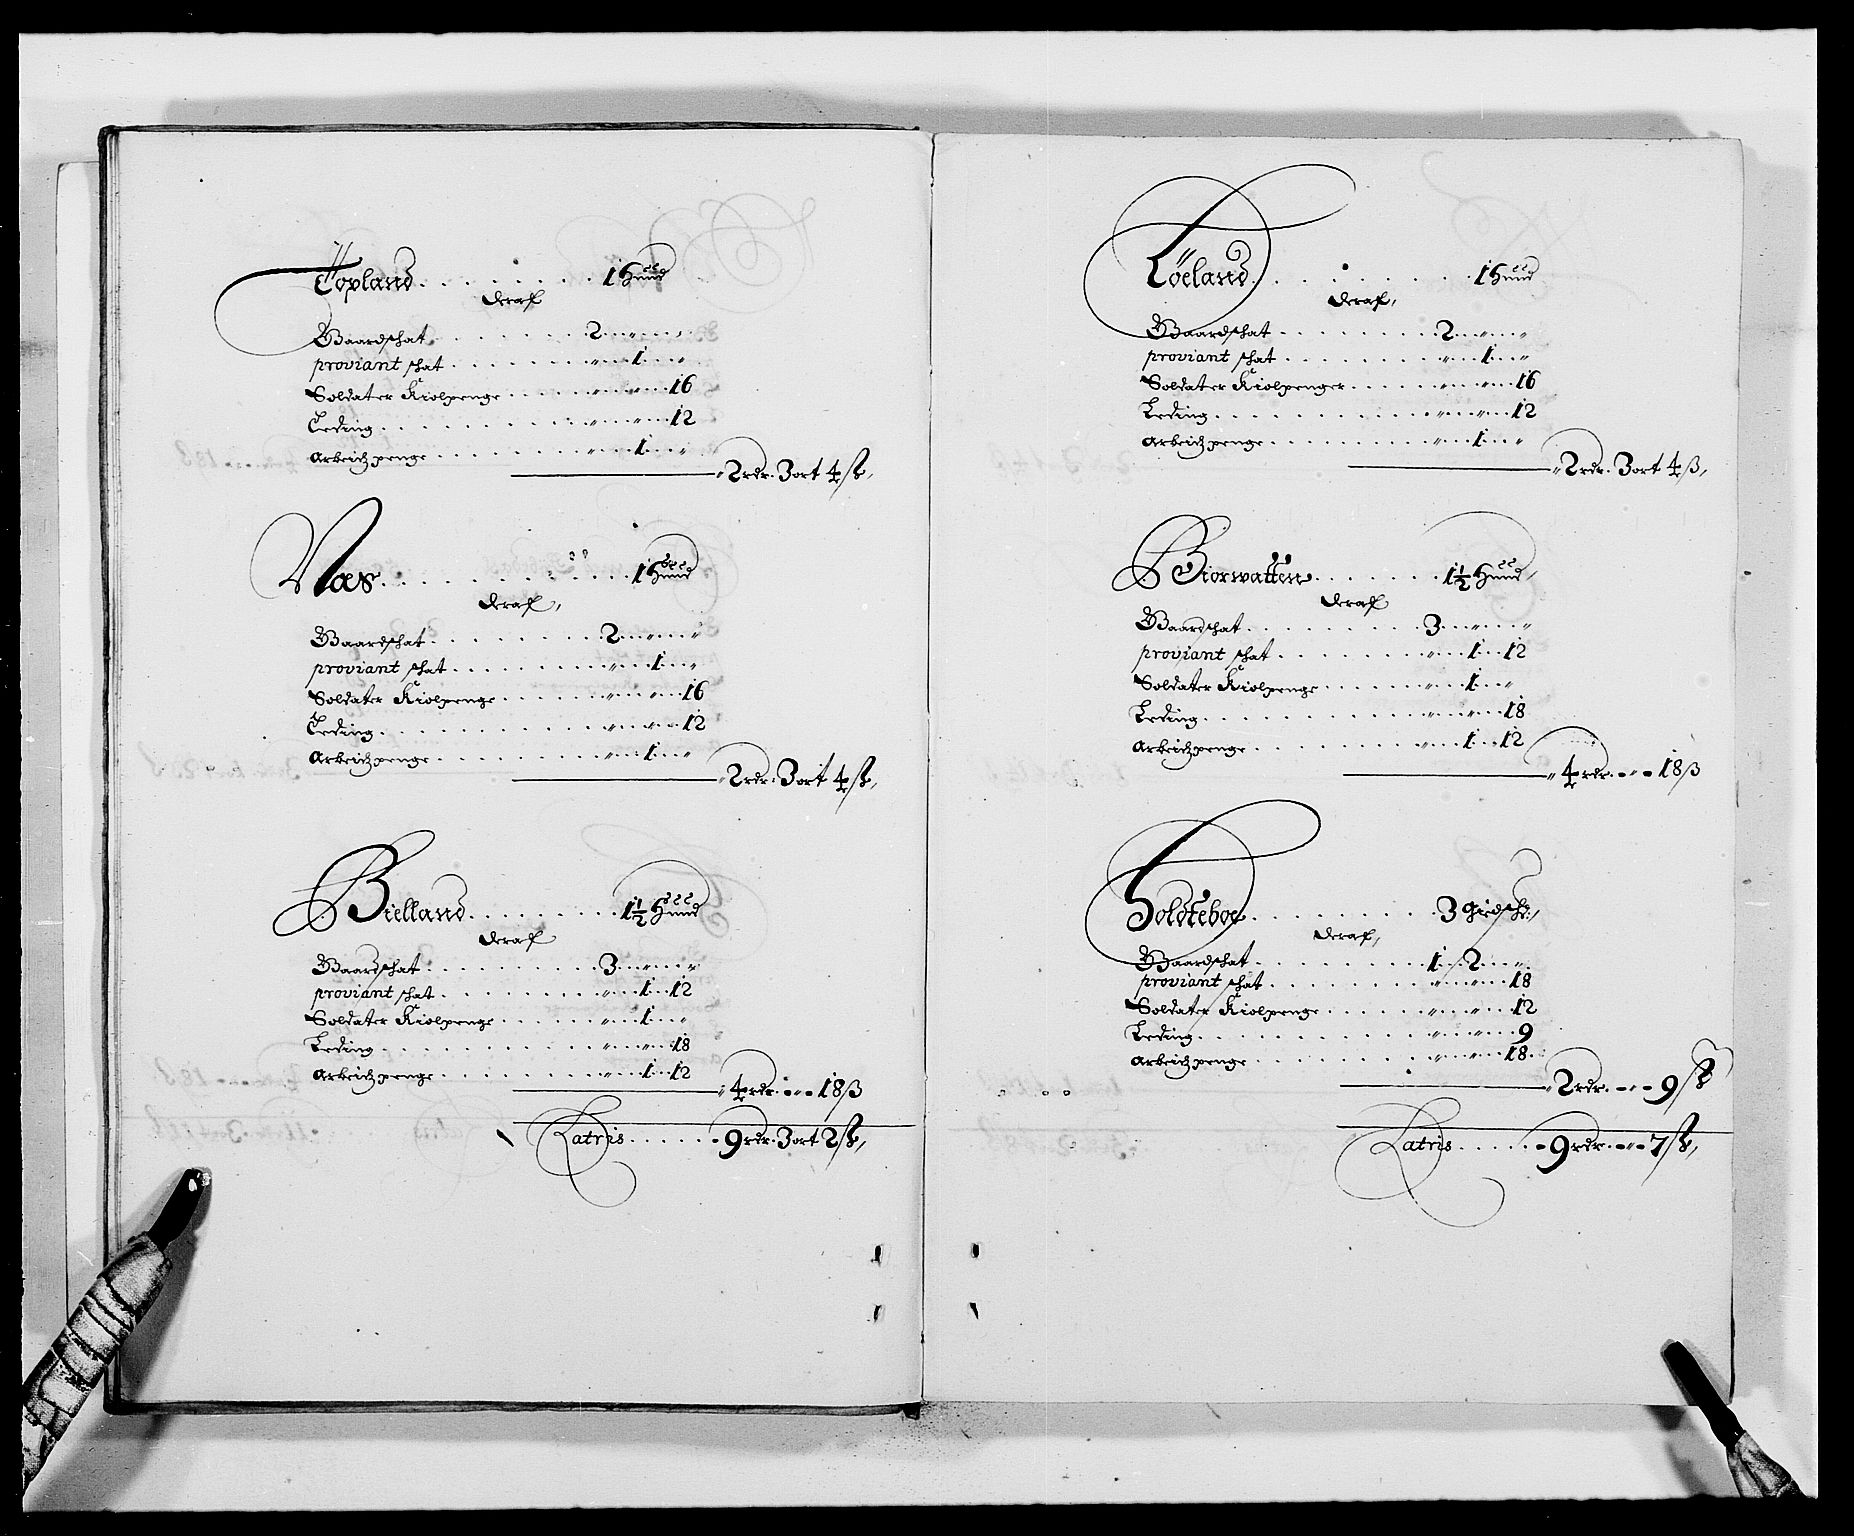 Topland . . . . . . . 1 Hund
Deraf
Gaardschat . . . . . . 2 " "
proviant schat . . . . . " 1 "
Soldater Kiolpenge . . . . " " 16
Leding . . . . . . . " " 12
Arbeidz penge . . . . . . " 1 "
2 rdr. 3 ort 4 ß,
Næs . . . . . . . . 1 Hund
Deraf,
Gaardschat . . . . . . 2 " "
proviant schat . . . . . " 1 "
Soldater Kiolpenge . . . . " " 16
Leding . . . . . . . " " 12
Arbeidz penge . . . . . . " 1 "
2 rdr. 3 ort 4 ß,
Bielland . . . . . . 1½ Hund
Deraf
Gaardschat . . . . . . 3 " "
proviant schat . . . . . " 1 12
Soldater Kiolpenge . . . . " 1 "
Leding . . . . . . . " " 18
Arbeidz penge . . . . . . " 1 12
4 rdr. " 18 ß
Latris . . . . . 9 rdr. 3 ort 2 ß,
Löeland . . . . . . . 1 Hund
Deraf,
Gaardschat . . . . . . 2 " "
proviant schat . . . . . " 1 "
Soldater Kiolpenger . . . . " " 16
Leding . . . . . . . " " 12
Arbeidz penge . . . . . . " 1 "
2 rdr. 3 ort 4 ß,
Biorwatten . . . . . 1½ Hund,
Deraf
Gaardschat . . . . . . 3 " "
proviant schat . . . . . " 1 12
Soldater Kiolpenge . . . . " 1 "
Leding . . . . . . . " " 18
Arbeidz penge . . . . . . " 1 12
4 rdr. " 18 ß
Holdteboe . . . . . . 3
Deraf,
Gaardschat . . . . . . 1 2 "
proviant schat . . . . . " " 18
Soldater Kiolpenge . . . . " " 12
Leding . . . . . . . " " 9
Arbeidz penge . . . . . . " " 18
2 rdr. " 9 ß
Latris . . . . . 9 rdr. " 7 ß,